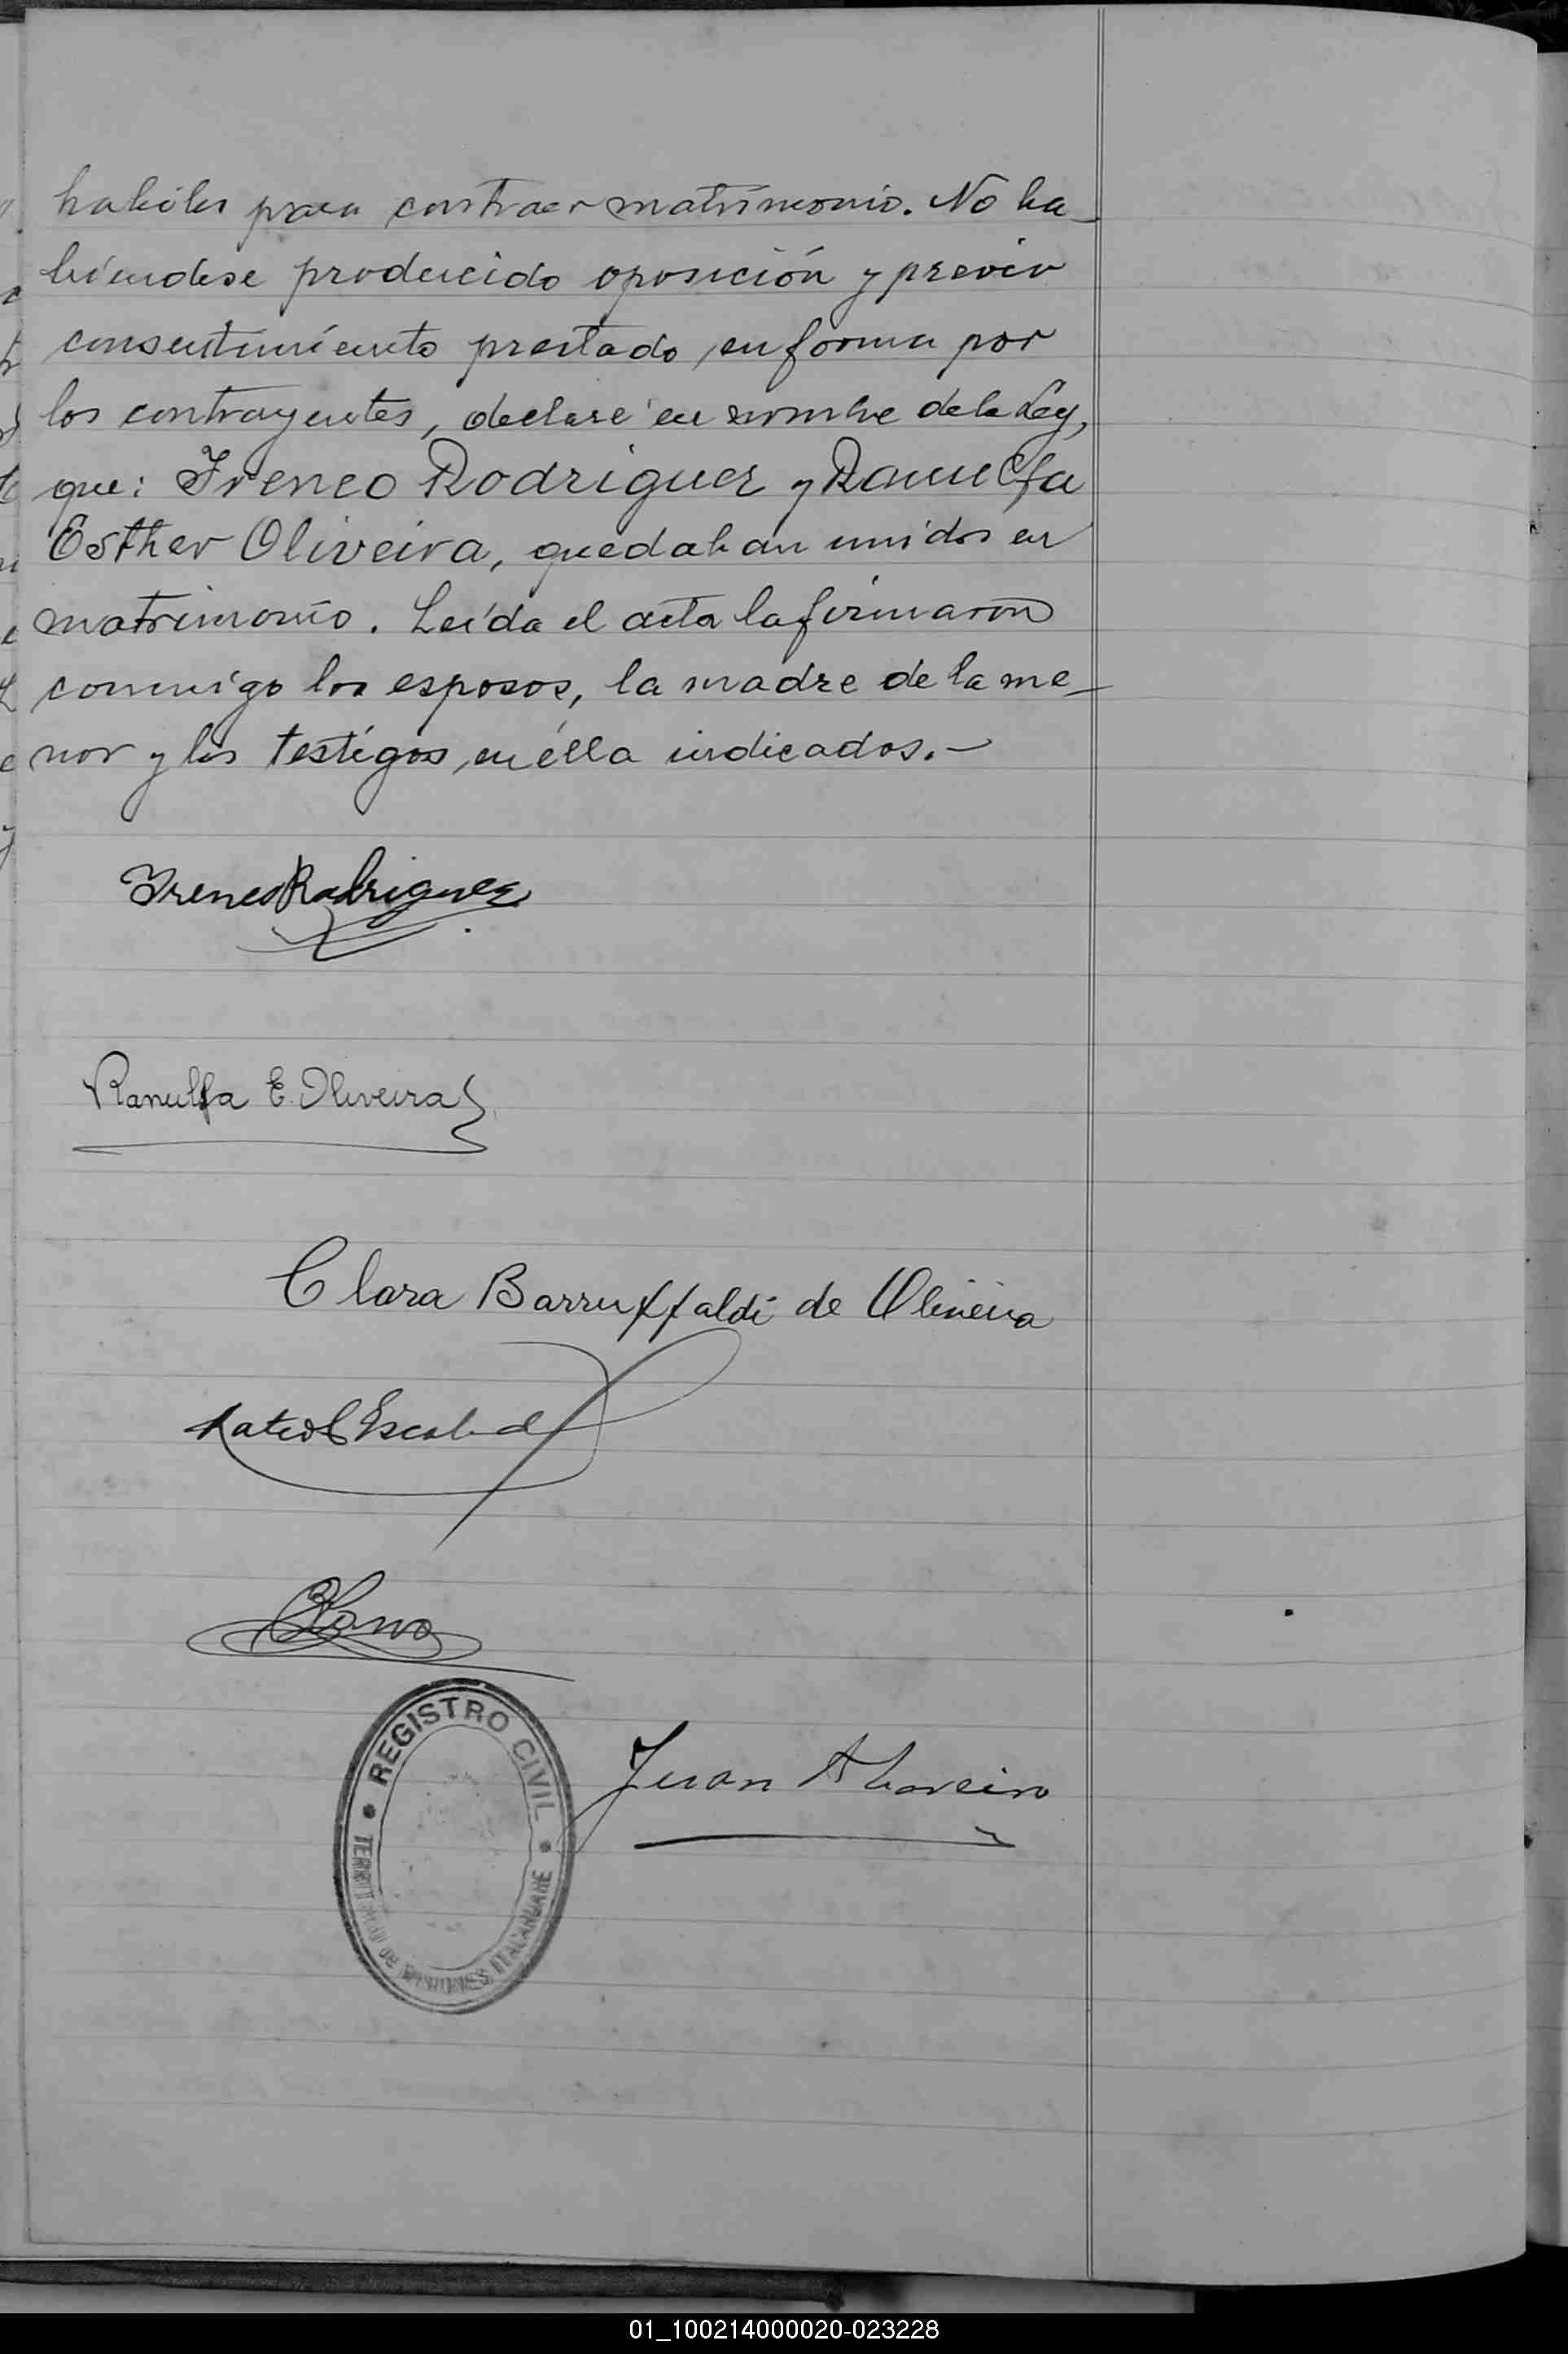 habiles para contraer matrimonio. No ha-
biéndose producido oposición y previo
consentimiento prestado, en forma por
los contrayentes, declaré en nombre de la Ley,
que: Ireneo Rodriguez y Ranulfa
Esther Oliveira, quedaban unidos en
matrimonio. Leída el acta la firmaron
conmigo los esposos, la madre de la me-
nor y los testigos, en élla indicados.-
Ireneo Rodriguez
Ranulfa E. Oliveira
Clara Barruffaldi de Oliveira
Juan
REGISTRO CIVIL
TERRITORIO DE MISIONES ITACARUARE
01_100214000020-023228